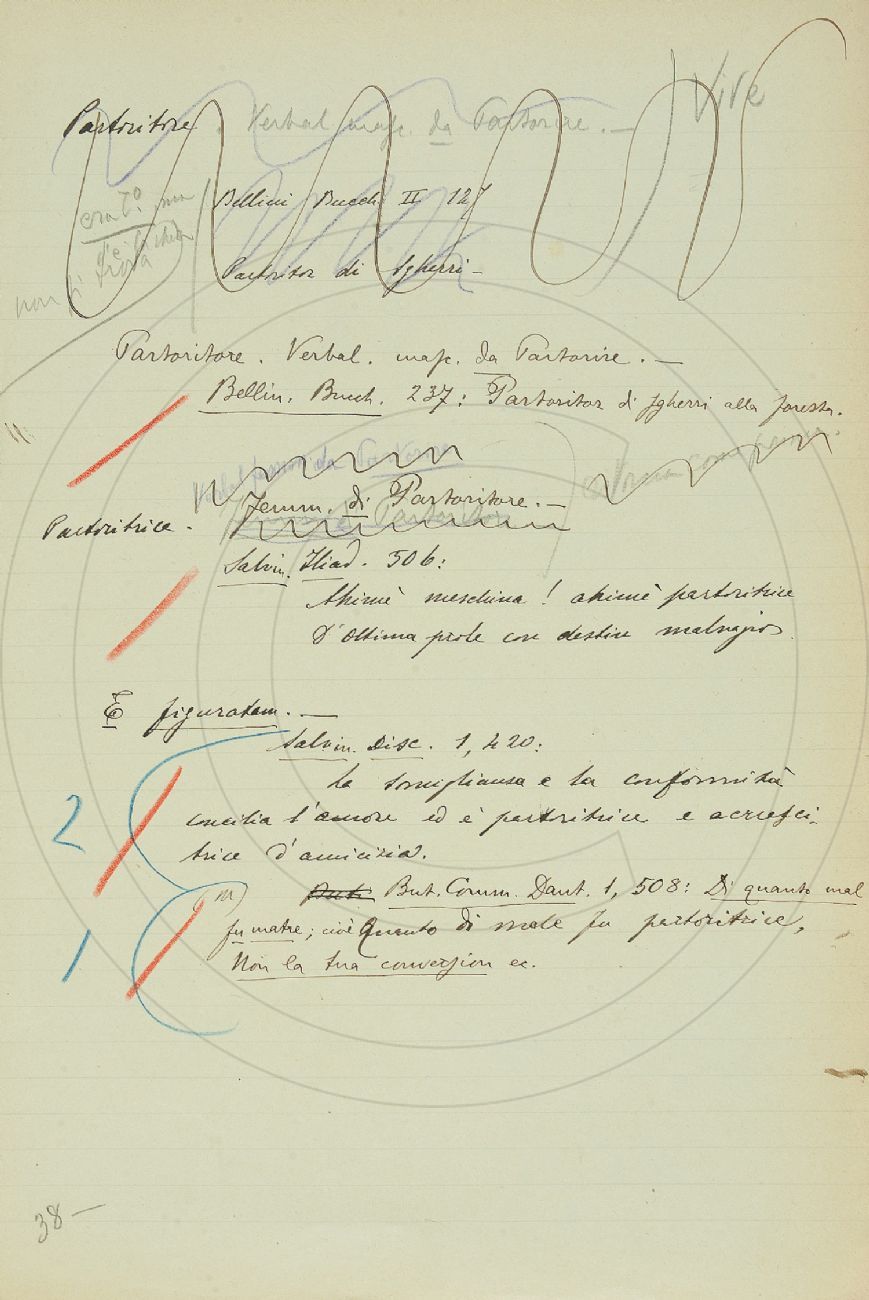 Vive
Partoritore. Verbal. masc. da Partorire. —
Bellini Bucch. II 127
Partoritor di sgherri —
non si trova
Partoritore. Verbal. masc. da Partorire. —
Bellin. Bucch. 237: Partoritor di sgherri alla foresta.
Femm. di Partoritore. —
Partoritrice.
Salvin. Iliad. 506:
Ahimè meschina! ahimè partoritrice
D'ottima prole con destin malvagio
E figuratam. —
Salvin. Disc. 1, 420:
La somiglianza e la conformità
2
concilia l'amore ed è partoritrice e accresci-
trice d'amicizia.
(m) Buti But. Comm. Dant. 1, 508: Di quanto mal
1
fu matre; cioè Quanto di male fu partoritrice,
Non la tua conversion ec.
38 —